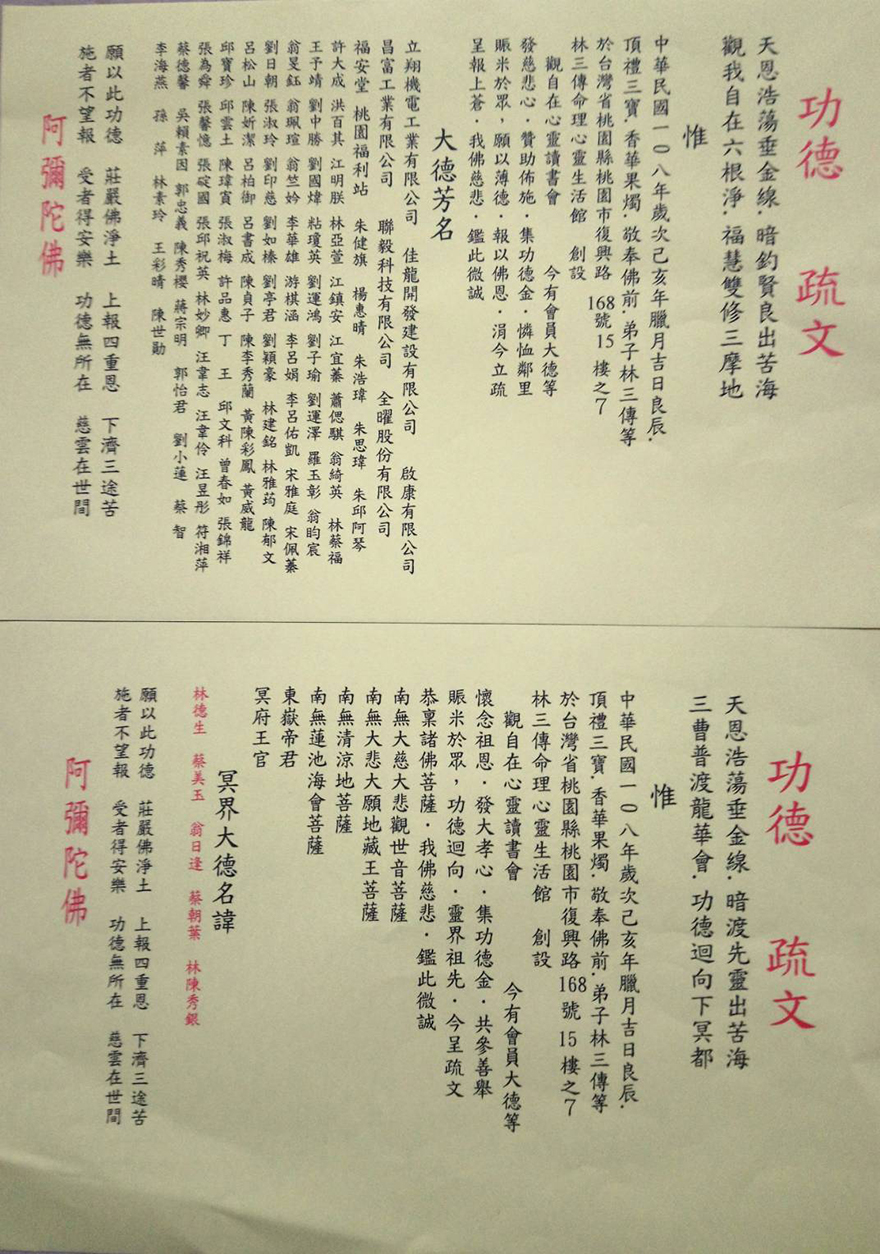 功德 疏文
天恩浩蕩垂金線．暗釣賢良出苦海
觀我自在六根淨．福慧雙修三摩地
惟
中華民國一０八年歲次己亥年臘月吉日良辰．
頂禮三寶．香華果燭．敬奉佛前．弟子林三傳等
於台灣省桃園縣桃園市復興路 168號 15 樓之7
林三傳命理心靈生活館 創設
觀自在心靈讀書會 今有會員大德等
發慈悲心．贊助佈施．集功德金．憐恤鄰里
賑米於眾，願以薄德．報以佛恩．涓今立疏
呈報上蒼．我佛慈悲．鑑此微誠
大德芳名
立翔機電工業有限公司 佳龍開發建設有限公司 啟康有限公司
昌富工業有限公司 聯毅科技有限公司 全曜股份有限公司
福安堂 桃園福利站 朱健旗 楊惠晴 朱浩瑋 朱思瑋 朱邱阿琴
許大成 洪百其 江明朕 林亞萱 江鎮安 江宜蓁 蕭偲騏 翁綺英 林蔡福
王予靖 劉中勝 劉國煒 粘瓊英 劉運鴻 劉子瑜 劉運澤 羅玉彰 翁昀宸
翁旻鈺 翁珮瑄 翁竺妗 李華雄 游棋涵 李呂娟 李呂佑凱 宋雅庭 宋佩蓁
劉日朝 張淑玲 劉印慈 劉如榛 劉亭君 劉穎豪 林建銘 林雅筠 陳郁文
呂松山 陳妡潔 呂柏御 呂書成 陳貞子 陳李秀蘭 黃陳彩鳳 黃威龍
邱寶珍 邱雲土 陳瑋寅 張淑梅 許品惠 丁 王 邱文科 曾春如 張錦祥
張為舜 張馨憶 張碇國 張邱祝英 林妙卿 汪韋志 汪韋伶 汪昱彤 符湘萍
蔡德馨 吳賴素因 郭忠義 陳秀櫻 蔣宗明 郭怡君 劉小蓮 蔡 智
李海燕 孫 萍 林素玲 王彩晴 陳世勛
願以此功德 莊嚴佛淨土 上報四重恩 下濟三途苦
施者不望報 受者得安樂 功德無所在 慈雲在世間
阿彌陀佛
功德 疏文
天恩浩蕩垂金線．暗渡先靈出苦海
三曹普渡龍華會．功德迴向下冥都
惟
中華民國一０八年歲次己亥年臘月吉日良辰．
頂禮三寶．香華果燭．敬奉佛前．弟子林三傳等
於台灣省桃園縣桃園市復興路168號 15 樓之7
林三傳命理心靈生活館 創設
觀自在心靈讀書會 今有會員大德等
懷念祖恩．發大孝心．集功德金．共參善舉
賑米於眾，功德迴向．靈界祖先．今呈疏文
恭稟諸佛菩薩．我佛慈悲．鑑此微誠
南無大慈大悲觀世音菩薩
南無大悲大願地藏王菩薩
南無清涼地菩薩
南無蓮池海會菩薩
東嶽帝君
冥府王官
冥界大德名諱
林德生 蔡美玉 翁日逢 蔡朝葉 林陳秀銀
願以此功德 莊嚴佛淨土 上報四重恩 下濟三途苦
施者不望報 受者得安樂 功德無所在 慈雲在世間
阿彌陀佛